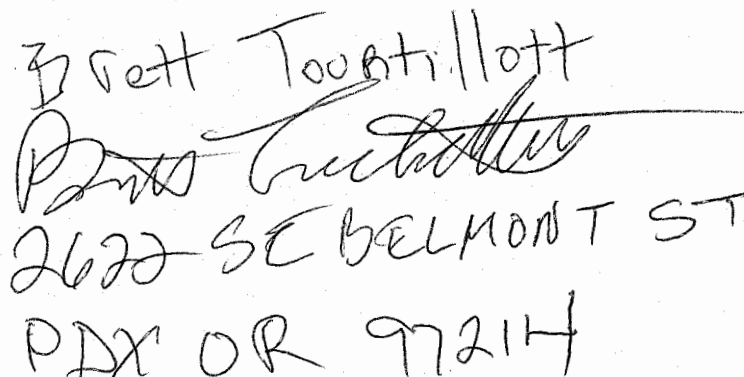 Brett Tourtillott
2622 SE BELMONT ST
PDX OR 97214